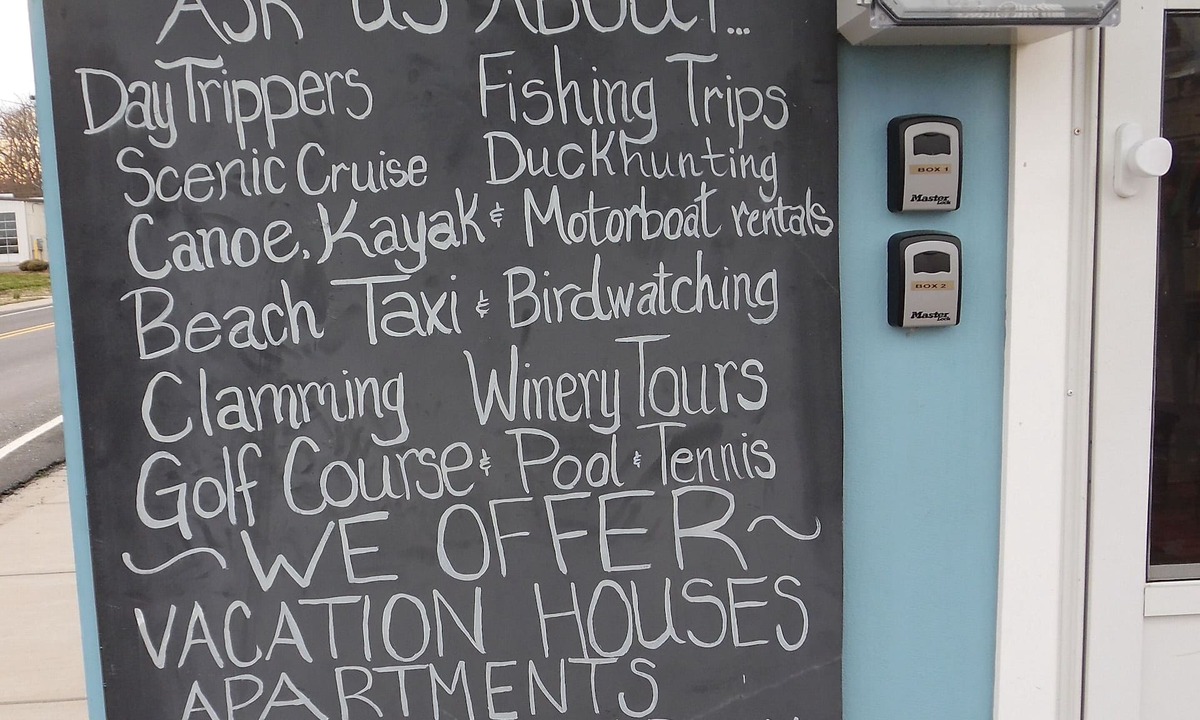 ASK US ABOUT...
DayTrippers Fishing Trips
Scenic Cruise Duckhunting
Canoe, Kayak & Motorboat rentals
Beach Taxi & Birdwatching
Clamming Winery Tours
Golf Course & Pool & Tennis
~ WE OFFER ~
VACATION HOUSES
APARTMENTS
BOX 1
Master Lock
BOX 2
Master Lock